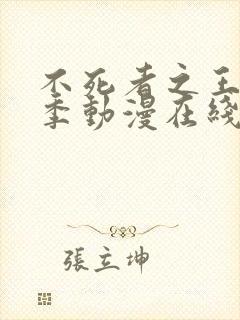 不死者之王
季動漫在綫
張立坤